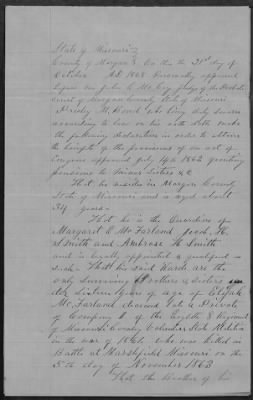 State of Missouri
County of Morgan } On this the 21st day of
October A.D. 1868 Personally appeared
before me John C. McCoy judge of the Probate
court of Morgan County State of Missouri
M. who being duly sworn
according to law on his oath doth make
the following declaration in order to obtain
the benefits of the provisions of an act of
Congress approved July 14th 1862 granting
pensions to minor Sisters &c
That he resides in Morgan County
State of Missouri and is aged about
34 years
That he is the Guardian of
Margaret C McFarland
Smith and Ambrose H Smith
and is legally appointed & qualified as
such. That his said Wards are the
only surviving Brothers & Sisters
under Sixteen years of age of Elijah
McFarland deceased late a Private
of Company of the Eighth Regiment
of Missouri Cavalry State Militia
in the war of 1861 who was killed in
Battle at Marshfield Missouri on the
5th day of November 1863
That the Brother of his